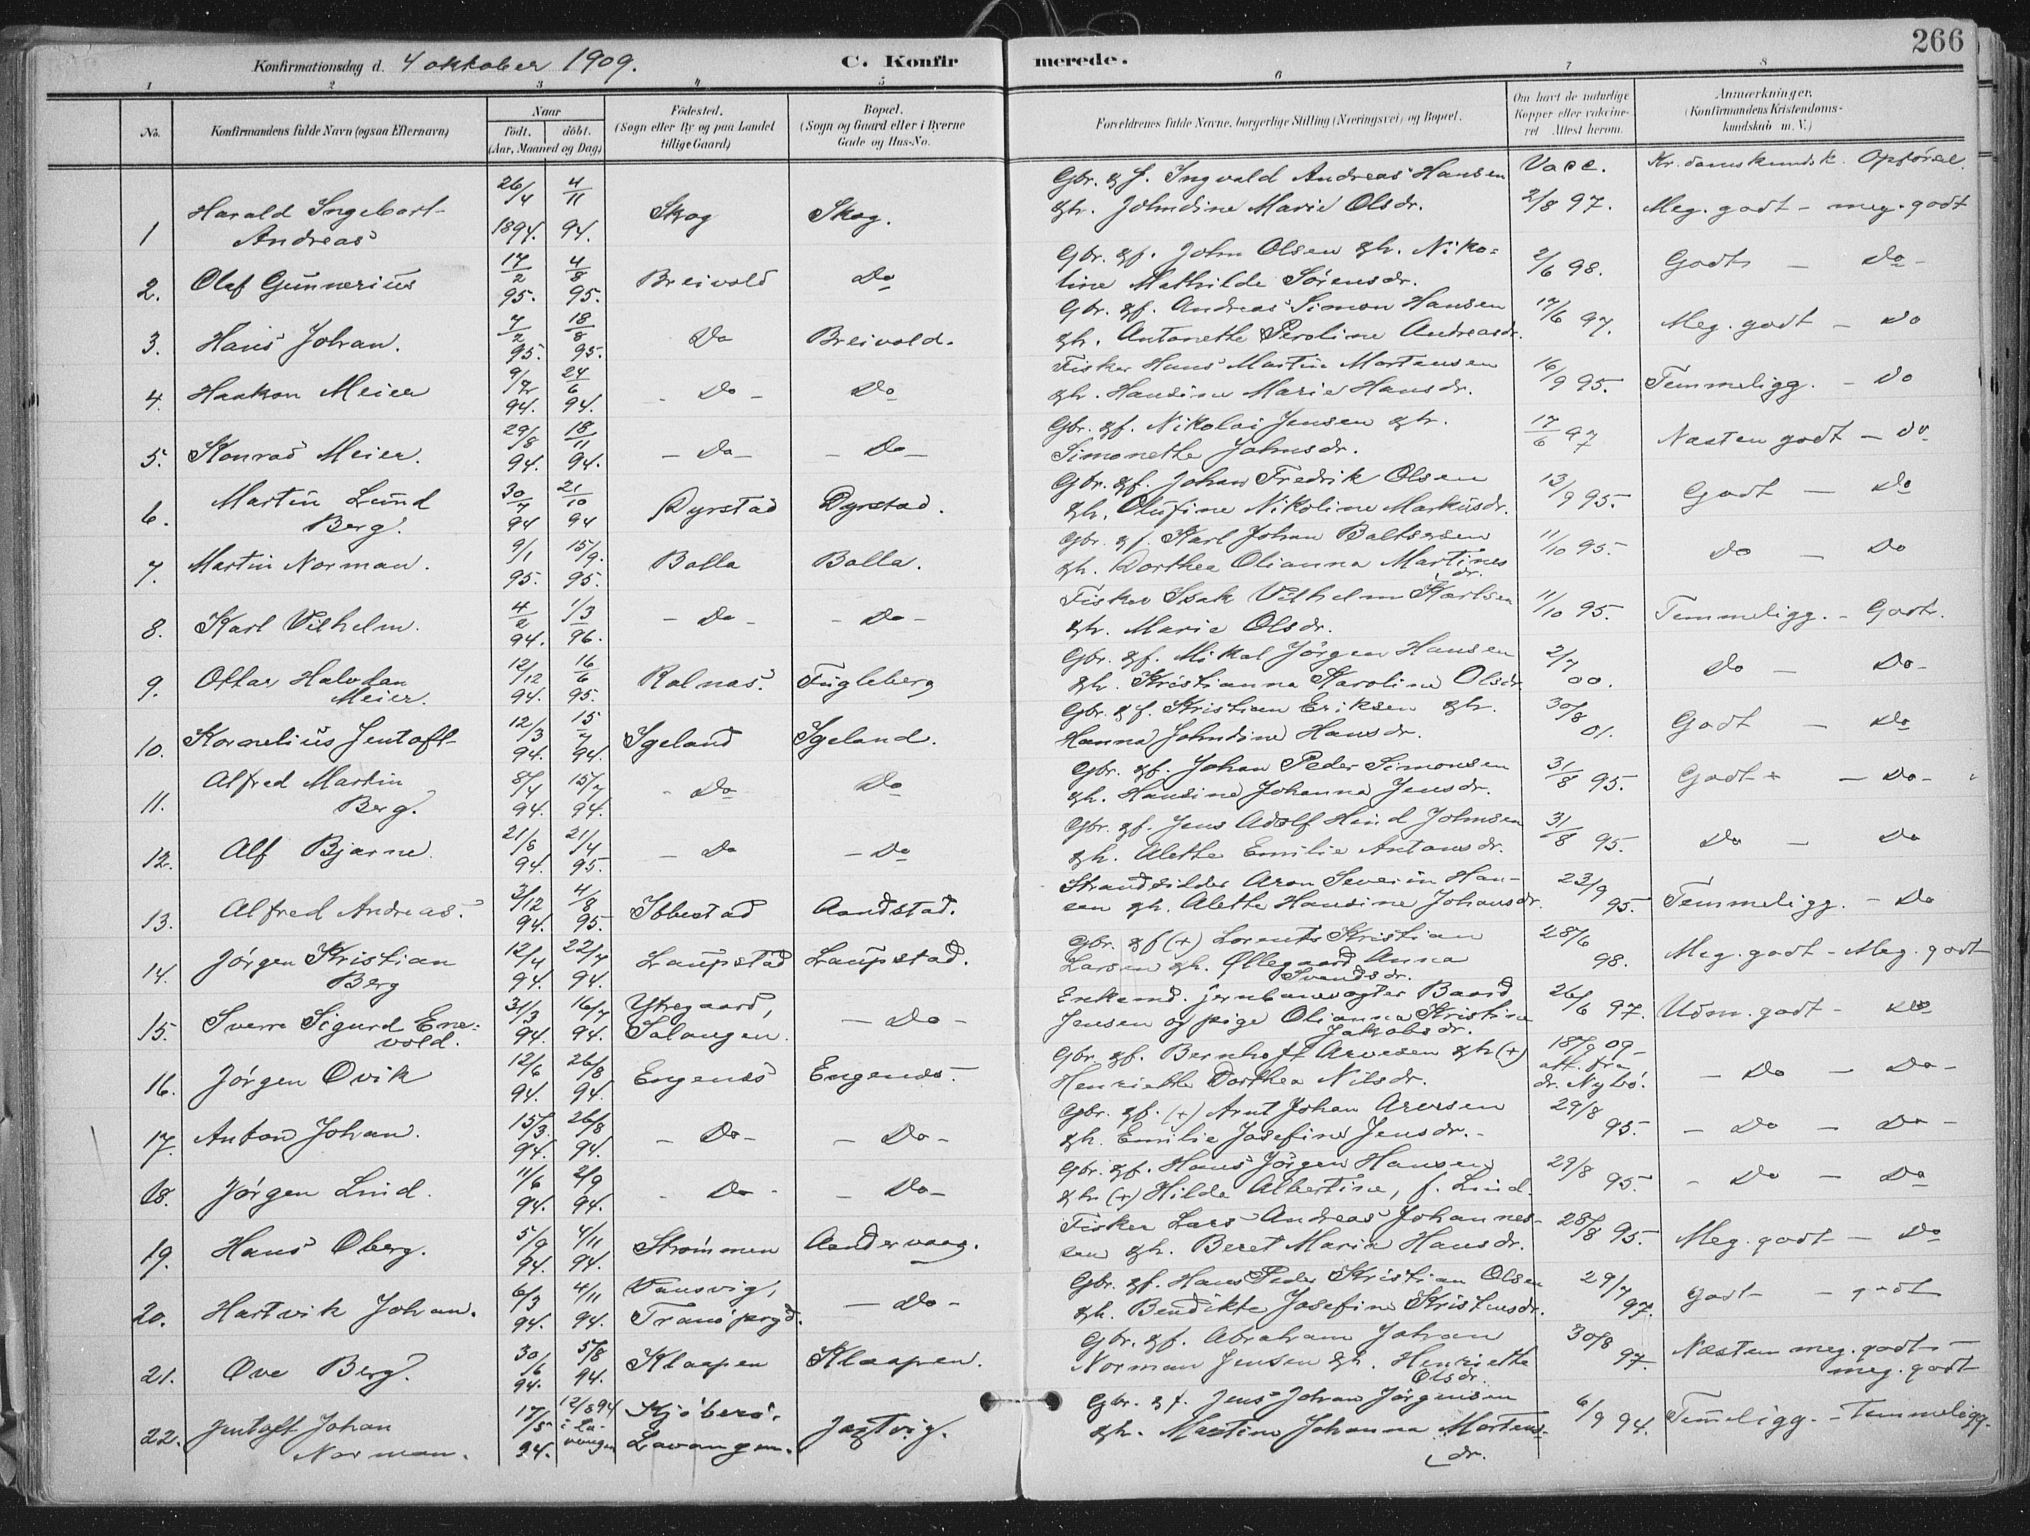 266
Konfirmationsdag d. 4 oktober 1909. C. Konfirmerede.
1 2 3 4 5 6 7 8
No. Konfirmandens fulde Navn (ogsaa Efternavn) Naar født. døbt. (Aar, Maaned og Dag) Fødested. (Sogn eller By og paa Landet tillige Gaard) Bopæl. (Sogn og Gaard eller i Byerne Gade og Hus-No. Forældrenes fulde Navne, borgerlige Stilling (Næringsvei) og Bopæl. Om havt de naturlige Kopper eller vaccineret. Attest herom. Anmærkninger. (Konfirmandens Kristendomskundskab m. V.)
Vacc. Kr.domskundsk. Opførsel
1 Harald Ingebart Andreas 26/4 1894. 4/11 94. Skog Skog. Gbr. & f. Ingvald Andreas Hansen &h. Johndine Marie Olsdr. 2/8 97. Meg. godt - meg. godt
2. Olaf Gunnerius 17/2 95. 4/8 95. Breivold Do Gbr. &f. John Olsen &h. Nikoline Mathilde Sørensdr. 2/6 98. Godt - Do -
3. Hans Johan. 7/2 95. 18/8 95. Do Breivold. Gbr. &f. Andreas Simon Hansen &h. Antonette Peroline Andreasdr. 17/6 97. Meg. godt - Do
4. Haakon Meier 9/ 94. 24/6 94. - Do - Do Fisker Hans Martin Mortensen &h. Hansine Marie Hansdr. 16/9 95. Temmeligg. - Do
5. Konrad Meier. 29/8 94. 18/11 94. - Do - - Do - Gbr. &f. Nikolai Jensen &h. Simonette Johnsdr. 17/6 97 Næsten godt - do
6. Martin Lund Berg. 30/7 94 21/10 94 Dyrstad Dyrstad. Gbr. &f. Johan Fredrik Olsen &h. Olufine Nikoline Markusdr. 13/9 95. Godt - Do
7. Martin Norman. 9/1 95. 15/9. 95. Bolla Bolla. Gbr. & f. Karl Johan Baltsersen &h. Dorthea Olianna Martinesdr. 11/10 95. Do - Do
8. Karl Vilhelm. 4/2 94. 1/3 96. - Do - - Do - Fisker Isak Vilhelm Karlsen &h. Marie Olsdr. 11/10 95. Temmeligg. - Godt.
9. Ottar Halvdan Meier. 12/12 94. 16/6 95. Rolnas. Fugleberg Gbr. &f. Mikal Jørgen Hansen &h. Kristianna Karoline Olsdr 2/7 00. Do - Do -
10. Kornelius Jentoft 12/3 94. 15/7 94. Igeland Igeland. Gbr. & f. Kristian Eriksen &h. Hanna Johndine Hansdr. 30/8 01. Godt - Do
11. Alfred Martin Berg. 8/4 94. 15/7 94. - Do Do Gbr. &f. Johan Peder Simonsen &h. Hansine Johanna Jensdr. 31/8 95. Godt - Do -
12. Alf Bjarne 21/8 94. 21/4 95. - Do - Do Gbr. &f. Jens Adolf Hind Johnsen &h. Alette Emilie Antonsdr. 31/8 95. Do - Do
13. Alfred Andreas. 3/12 94. 4/8 95. Ibbestad Aandstad. Strandsidder Aron Severin Hansen &h. Alette Hansine Johansdr. 23/9 95. Temmeligg. - Do
14. Jørgen Kristian Berg 12/4 94. 22/7 94. Laupstad Laupstad. Gbr. &f (+) Lorents Kristian Larsen &h. Øllegaard Anna Svendsdr. 28/6 98. Meg. godt - Meg. godt
15. Sverre Sigurd Enevold. 31/3 94. 16/7 94. Ytregaard, Salangen. - Do - Enkemd. jernbanevogter Baard Jensen og pige Olianna Kristine Jakobsdr. 26/6 97. Udm. godt - do
16. Jørgen Ovik 12/6 94. 26/8 94. Engenes Engenes. Gbr. &f. Bernhoft Arvesen &h (+) Henriette Dorthea Nilsdr. 18/9 09 - att. fra dr. Nybø. - Do - Do -
17. Anton Johan. 15/3. 94. 26/8 94. - Do - - Do - Gbr. &f. (+) Arnt Johan Arvesen &h. Emilie Josefine Jensdr. - 29/8 95. - Do - Do -
18. Jørgen Lind. 11/6 94. 2/9 94. - Do - - Do - Gbr. &f. Hans Jørgen Hansen &h (+) Hilda Albertine, f. Lind. 29/8 95. - Do - Do
19. Hans Oberg. 5/9 94. 4/11 94. Strømmen Aandervaag. Fisker Lars Andreas Johannessen &h. Beret Maria Hansdr. 28/8 95. Meg. godt - Do
20. Hartvik Johan. 6/3 94. 4/11 94. Vansvig, Tranø prgd. - Do - Gbr. &f. Hans Peder Kristian Olsen &h. Bendikte Josefine Kristensdr. 29/7 97. godt - godt
21. Ove Berg. 30/6 94. 5/8 94. Klaapen Klaapen. Gbr. &f. Abraham Johan Norman Jensen &h. Henriette Olsdr. 30/8 97. Næsten meg. godt - meg. godt
22. Jentoft Johan Norman. 17/5 94. 12/8 94 i Lavangen Kjøbersv. Lavangen. Jagtvig. Gbr. &f. Jens Johan Jørgensen &h. Martine Johanna Mortensdr. 6/9 94. Temeligg. - Temmeligg.